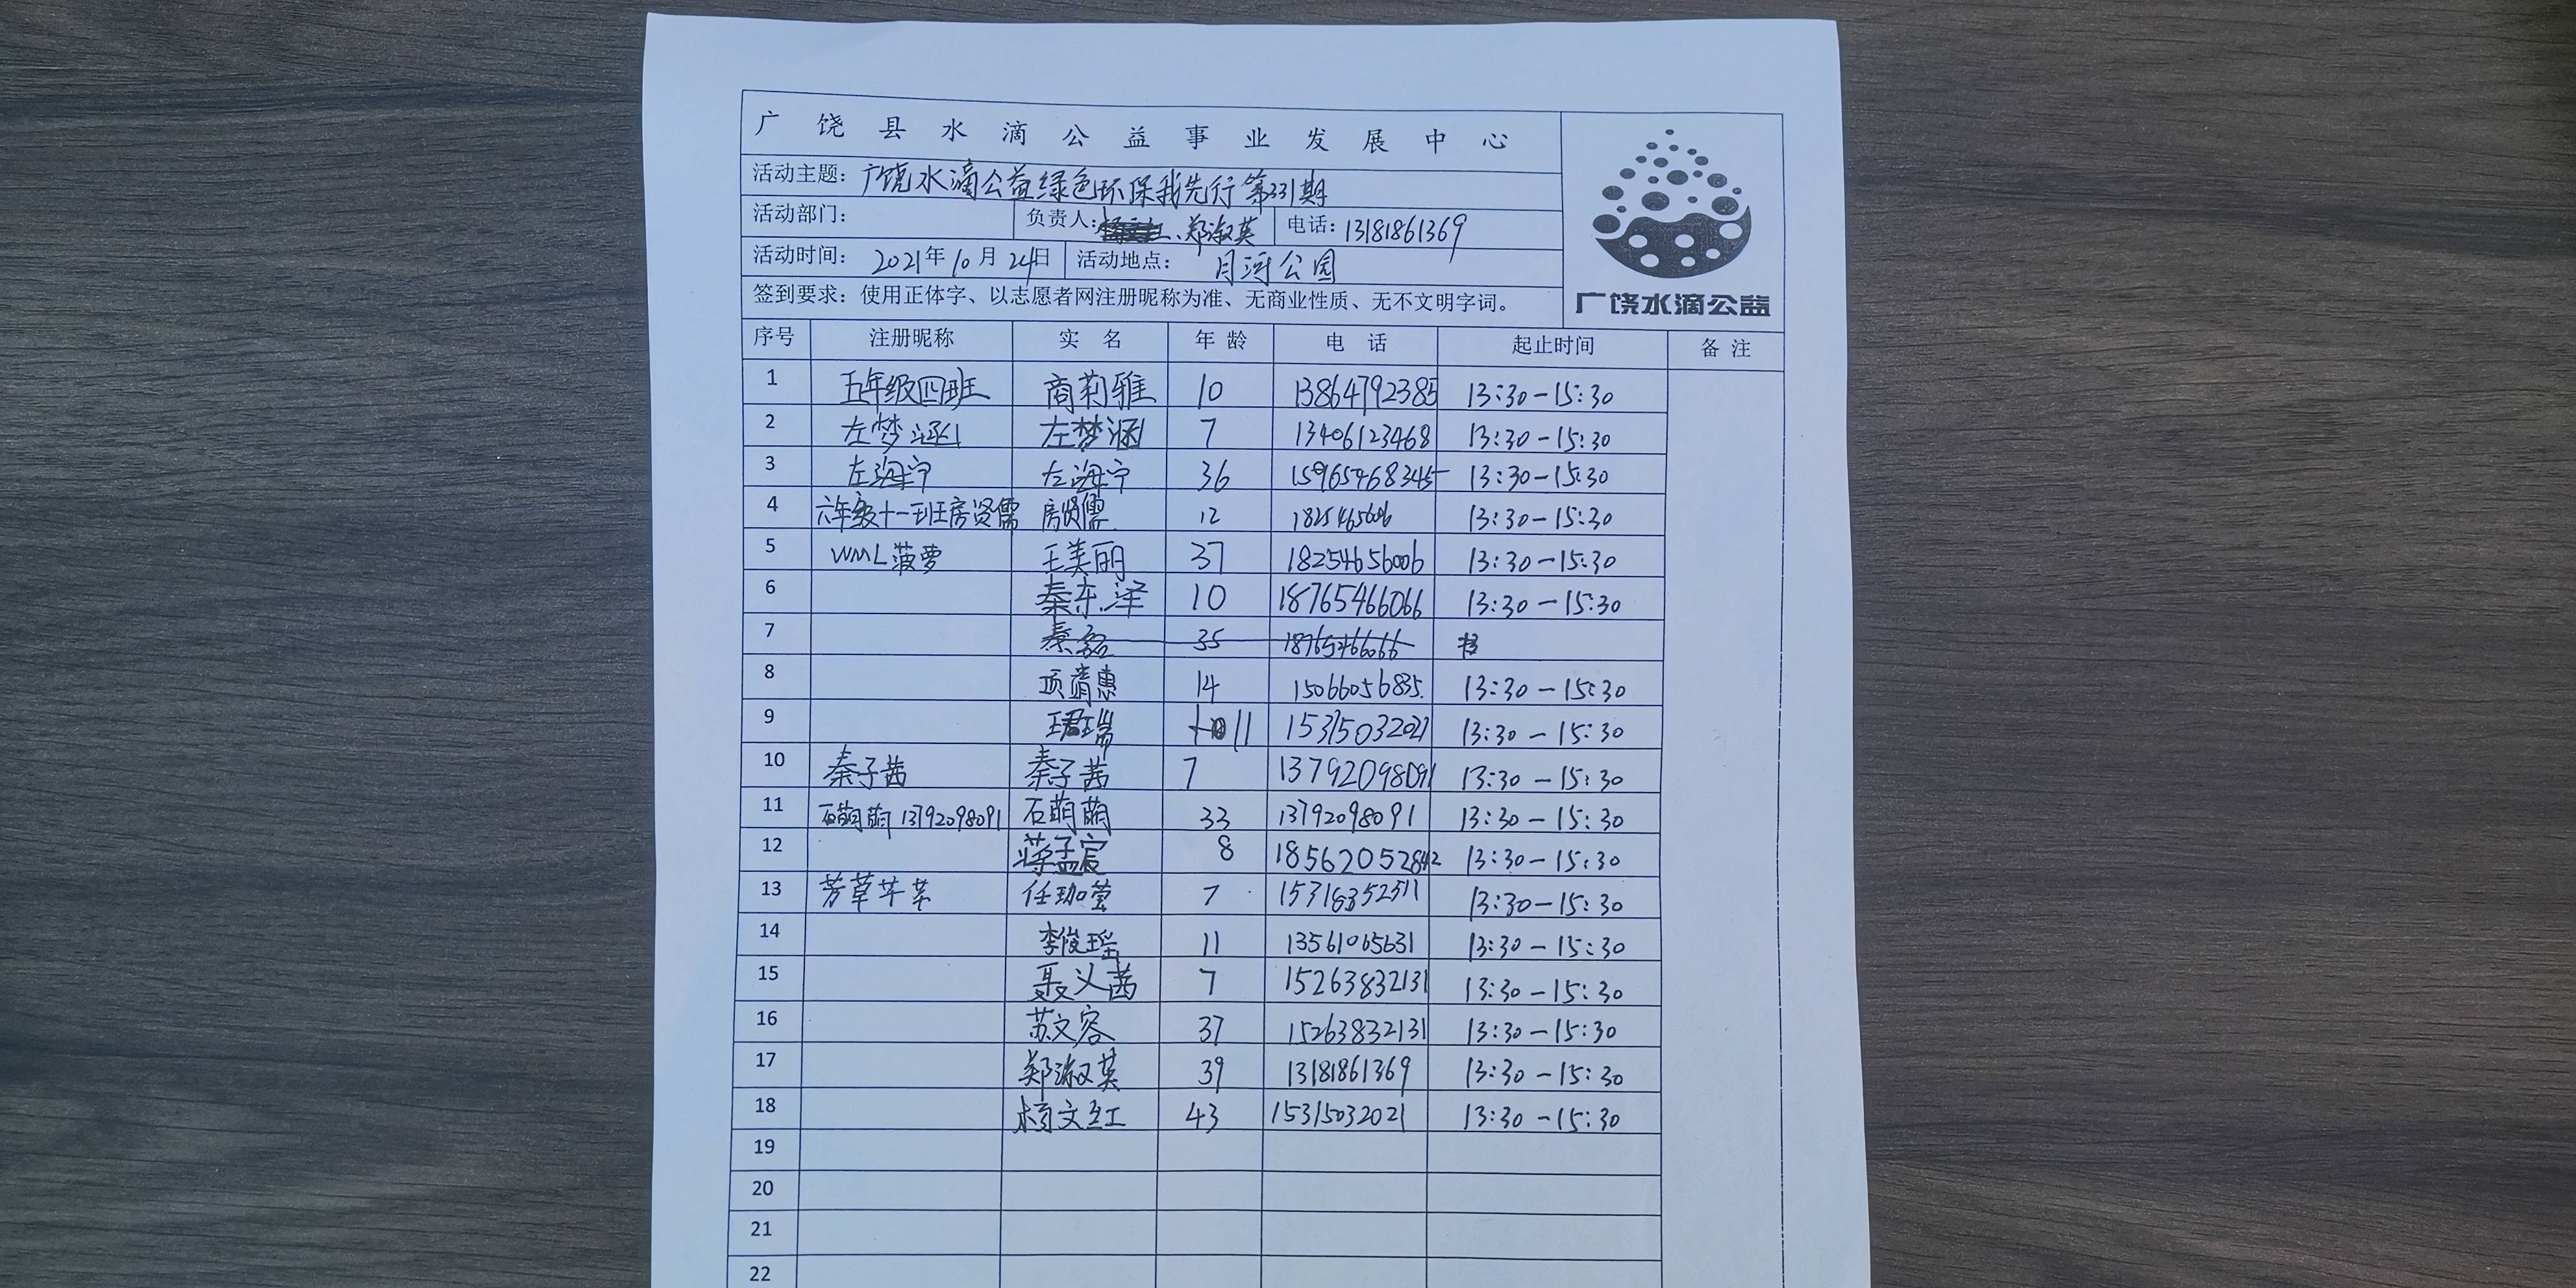 广饶县水滴公益事业发展中心
活动主题：广饶水滴公益绿色环保我先行第231期
活动部门： 负责人：郑淑英 电话：13181861369
活动时间： 2021年10月24日 活动地点： 月河公园
签到要求：使用正体字、以志愿者网注册昵称为准、无商业性质、无不文明字词。
广饶水滴公益
序号 注册昵称 实名 年龄 电话 起止时间 备注
1 五年级四班 商莉雅 10 13864792385 13:30-15:30
2 左梦涵 左梦涵 7 13406123468 13:30-15:30
3 左海宁 左海宁 36 15965468345 13:30-15:30
4 六年级十一班房贤儒 房贤儒 12 13:30-15:30
5 WML菠萝 王美丽 37 18254656006 13:30-15:30
6 秦东泽 10 18765466066 13:30-15:30
7 秦磊 35 18765466066
8 项靖惠 14 15066056835 13:30-15:30
9 王君瑞 11 15315032021 13:30-15:30
10 秦子茜 秦子茜 7 13792098091 13:30-15:30
11 石萌萌13792098091 石萌萌 33 13792098091 13:30-15:30
12 蒋孟宸 8 18562052842 13:30-15:30
13 芳草芊芊 任珈莹 7 13:30-15:30
14 李俊瑶 11 13561065631 13:30-15:30
15 聂义茜 7 15263832131 13:30-15:30
16 苏文容 37 15263832131 13:30-15:30
17 郑淑英 39 13181861369 13:30-15:30
18 杨文红 43 15315032021 13:30-15:30
19
20
21
22